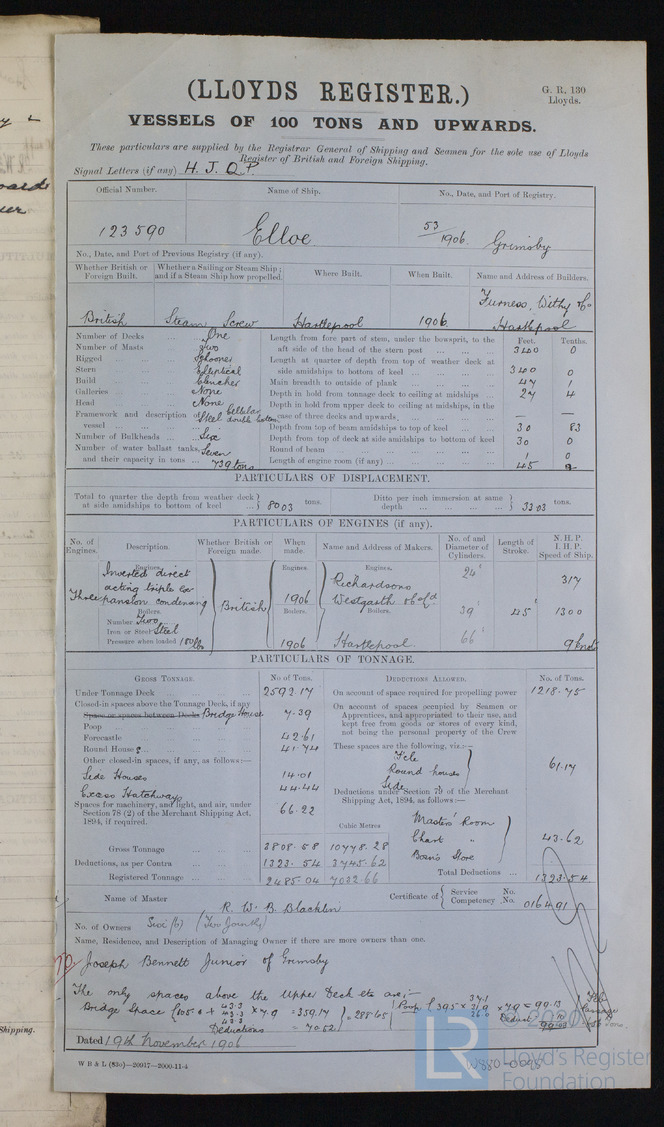 (LLOYDS REGISTER.)
G. R. 130
Lloyds.
VESSELS OF 100 TONS AND UPWARDS.
These particulars are supplied by the Registrar General of Shipping and Seamen for the sole use of Lloyds
Register of British and Foreign Shipping.
Signal Letters (if any) H. J. Q. P.
Official Number. Name of Ship. No., Date, and Port of Registry.
123590 Elloe 53/1906. Grimsby
No., Date, and Port of Previous Registry (if any).
Whether British or Foreign Built. Whether a Sailing or Steam Ship; and if a Steam Ship how propelled. Where Built. When Built. Name and Address of Builders.
British Steam Screw Hartlepool 1906 Furness, Withy & Co Hartlepool
Number of Decks One
Number of Masts Two
Rigged Schooner
Stern Elliptical
Build Clencher
Galleries None
Head None
Framework and description of vessel Steel Cellular double bottom
Number of Bulkheads Six
Number of water ballast tanks, Seven
and their capacity in tons 739 tons
Feet. Tenths.
Length from fore part of stem, under the bowsprit, to the aft side of the head of the stern post 340 0
Length at quarter of depth from top of weather deck at side amidships to bottom of keel 340 0
Main breadth to outside of plank 47 1
Depth in hold from tonnage deck to ceiling at midships 27 4
Depth in hold from upper deck to ceiling at midships, in the case of three decks and upwards — —
Depth from top of beam amidships to top of keel 30 83
Depth from top of deck at side amidships to bottom of keel 30 0
Round of beam 1 0
Length of engine room (if any) 45 2
PARTICULARS OF DISPLACEMENT.
Total to quarter the depth from weather deck at side amidships to bottom of keel 8003 tons.
Ditto per inch immersion at same depth 33.03 tons.
PARTICULARS OF ENGINES (if any).
No. of Engines. Description. Whether British or Foreign made. When made. Name and Address of Makers. No. of and Diameter of Cylinders. Length of Stroke. N. H. P. I. H. P. Speed of Ship.
Engines. Engines Engines.
Three Inverted direct acting triple expansion condensing British 1906 Richardsons Westgarth & Co Ld 24" 39" 66" 45" 317 1300 9 knots
Boilers. Boilers. Boilers.
Number Two
Iron or Steel Steel
Pressure when loaded 180 lbs 1906 Hartlepool
PARTICULARS OF TONNAGE.
GROSS TONNAGE. No of Tons.
Under Tonnage Deck 2592.17
Closed-in spaces above the Tonnage Deck, if any
Space or spaces between Decks Bridge House 7.39
Poop
Forecastle 42.61
Round House s 41.74
Other closed-in spaces, if any, as follows:—
Side Houses 14.01
Excess Hatchways 44.44
Spaces for machinery, and light, and air, under Section 78 (2) of the Merchant Shipping Act. 1894, if required. 66.22
Cubic Metres
Gross Tonnage 3808.58 10778.28
Deductions, as per Contra 1323.54 3745.62
Registered Tonnage 2485.04 7032.66
DEDUCTIONS ALLOWED. No. of Tons.
On account of space required for propelling power 1218.75
On account of spaces occupied by Seamen or Apprentices, and appropriated to their use, and kept free from goods or stores of every kind, not being the personal property of the Crew
These spaces are the following, viz.:—
Fcle
Round houses 61.17
Side
Deductions under Section 79 of the Merchant Shipping Act, 1894, as follows:—
Master's Room
Chart " 43.62
Bosn's Store
Total Deductions 1323.54
Name of Master R. W. B. Blacklin
Certificate of Service No. Competency No. 016491
No. of Owners Six (6) (Two jointly)
Name, Residence, and Description of Managing Owner if there are more owners than one.
Joseph Bennett Junior of Grimsby
The only spaces above the Upper Deck etc are;—
Bridge Space
Deductions = 70.52
Dated 19th November 1906
W B & L (83o)—20917—2000-11-4
W880-0098
LR
© 2020
Lloyd's Register
Foundation
Shipping.